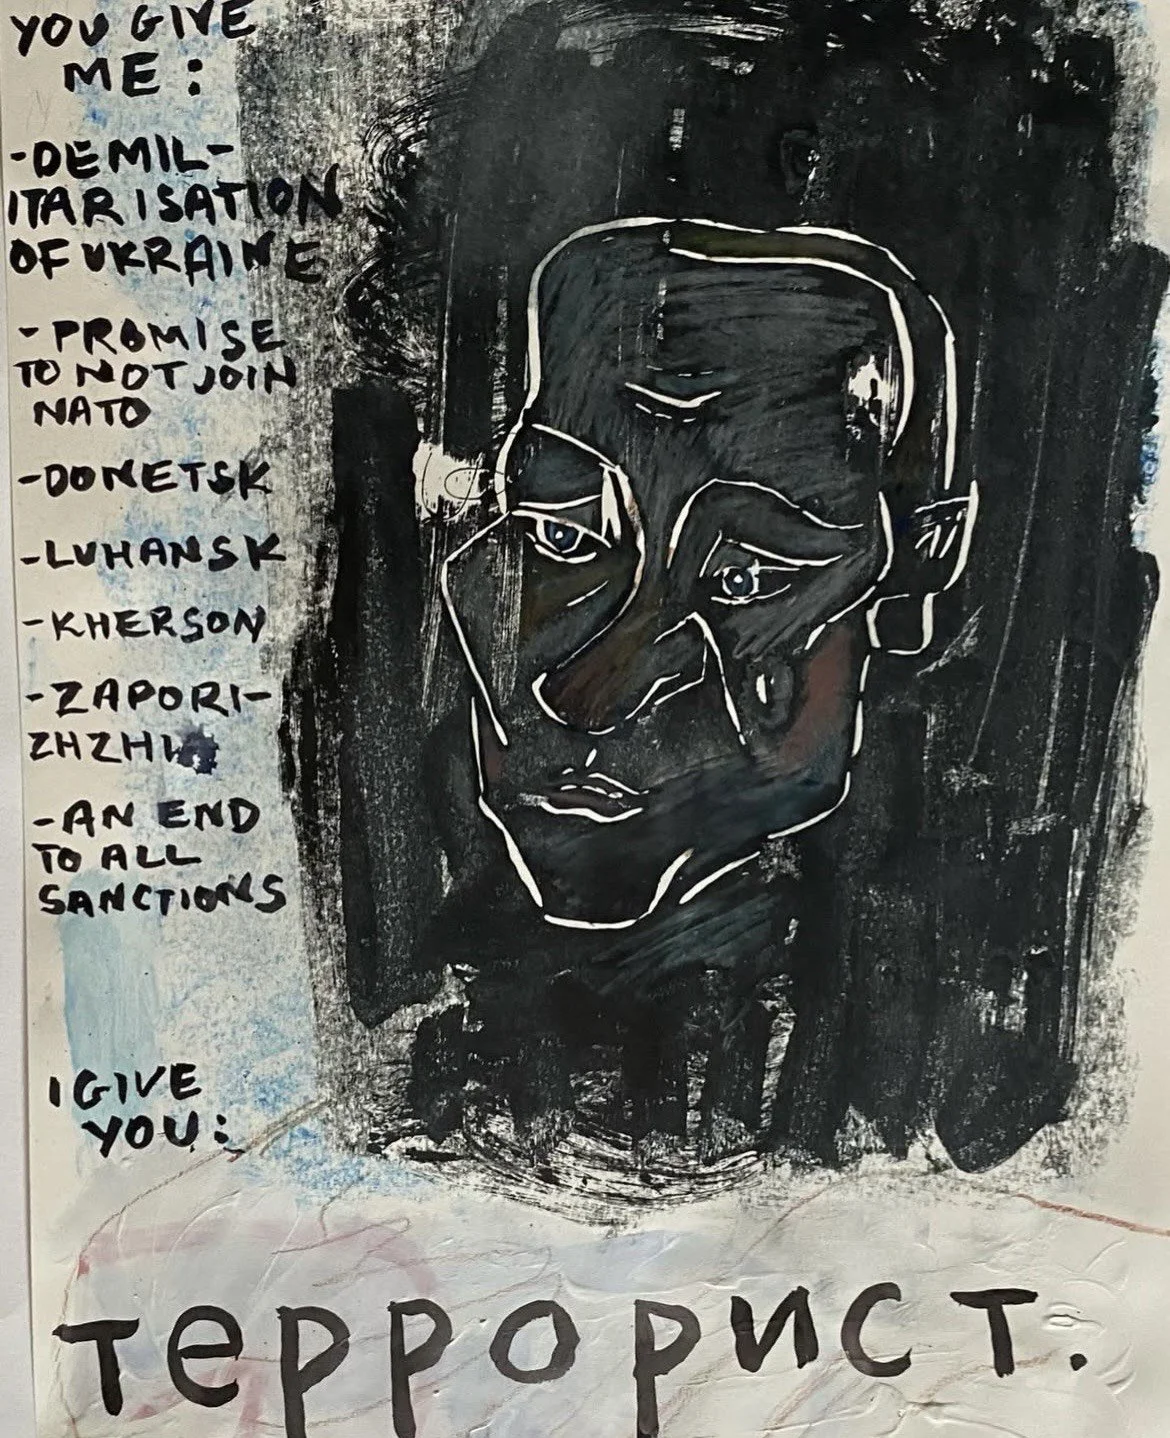 YOU GIVE
ME:
-DEMIL-
ITARISATION
OF UKRAINE
-PROMISE
TO NOT JOIN
NATO
-DONETSK
-LUHANSK
-KHERSON
-ZAPORI-
ZHZHIA
-AN END
TO ALL
SANCTIONS
I GIVE
YOU:
террорист.